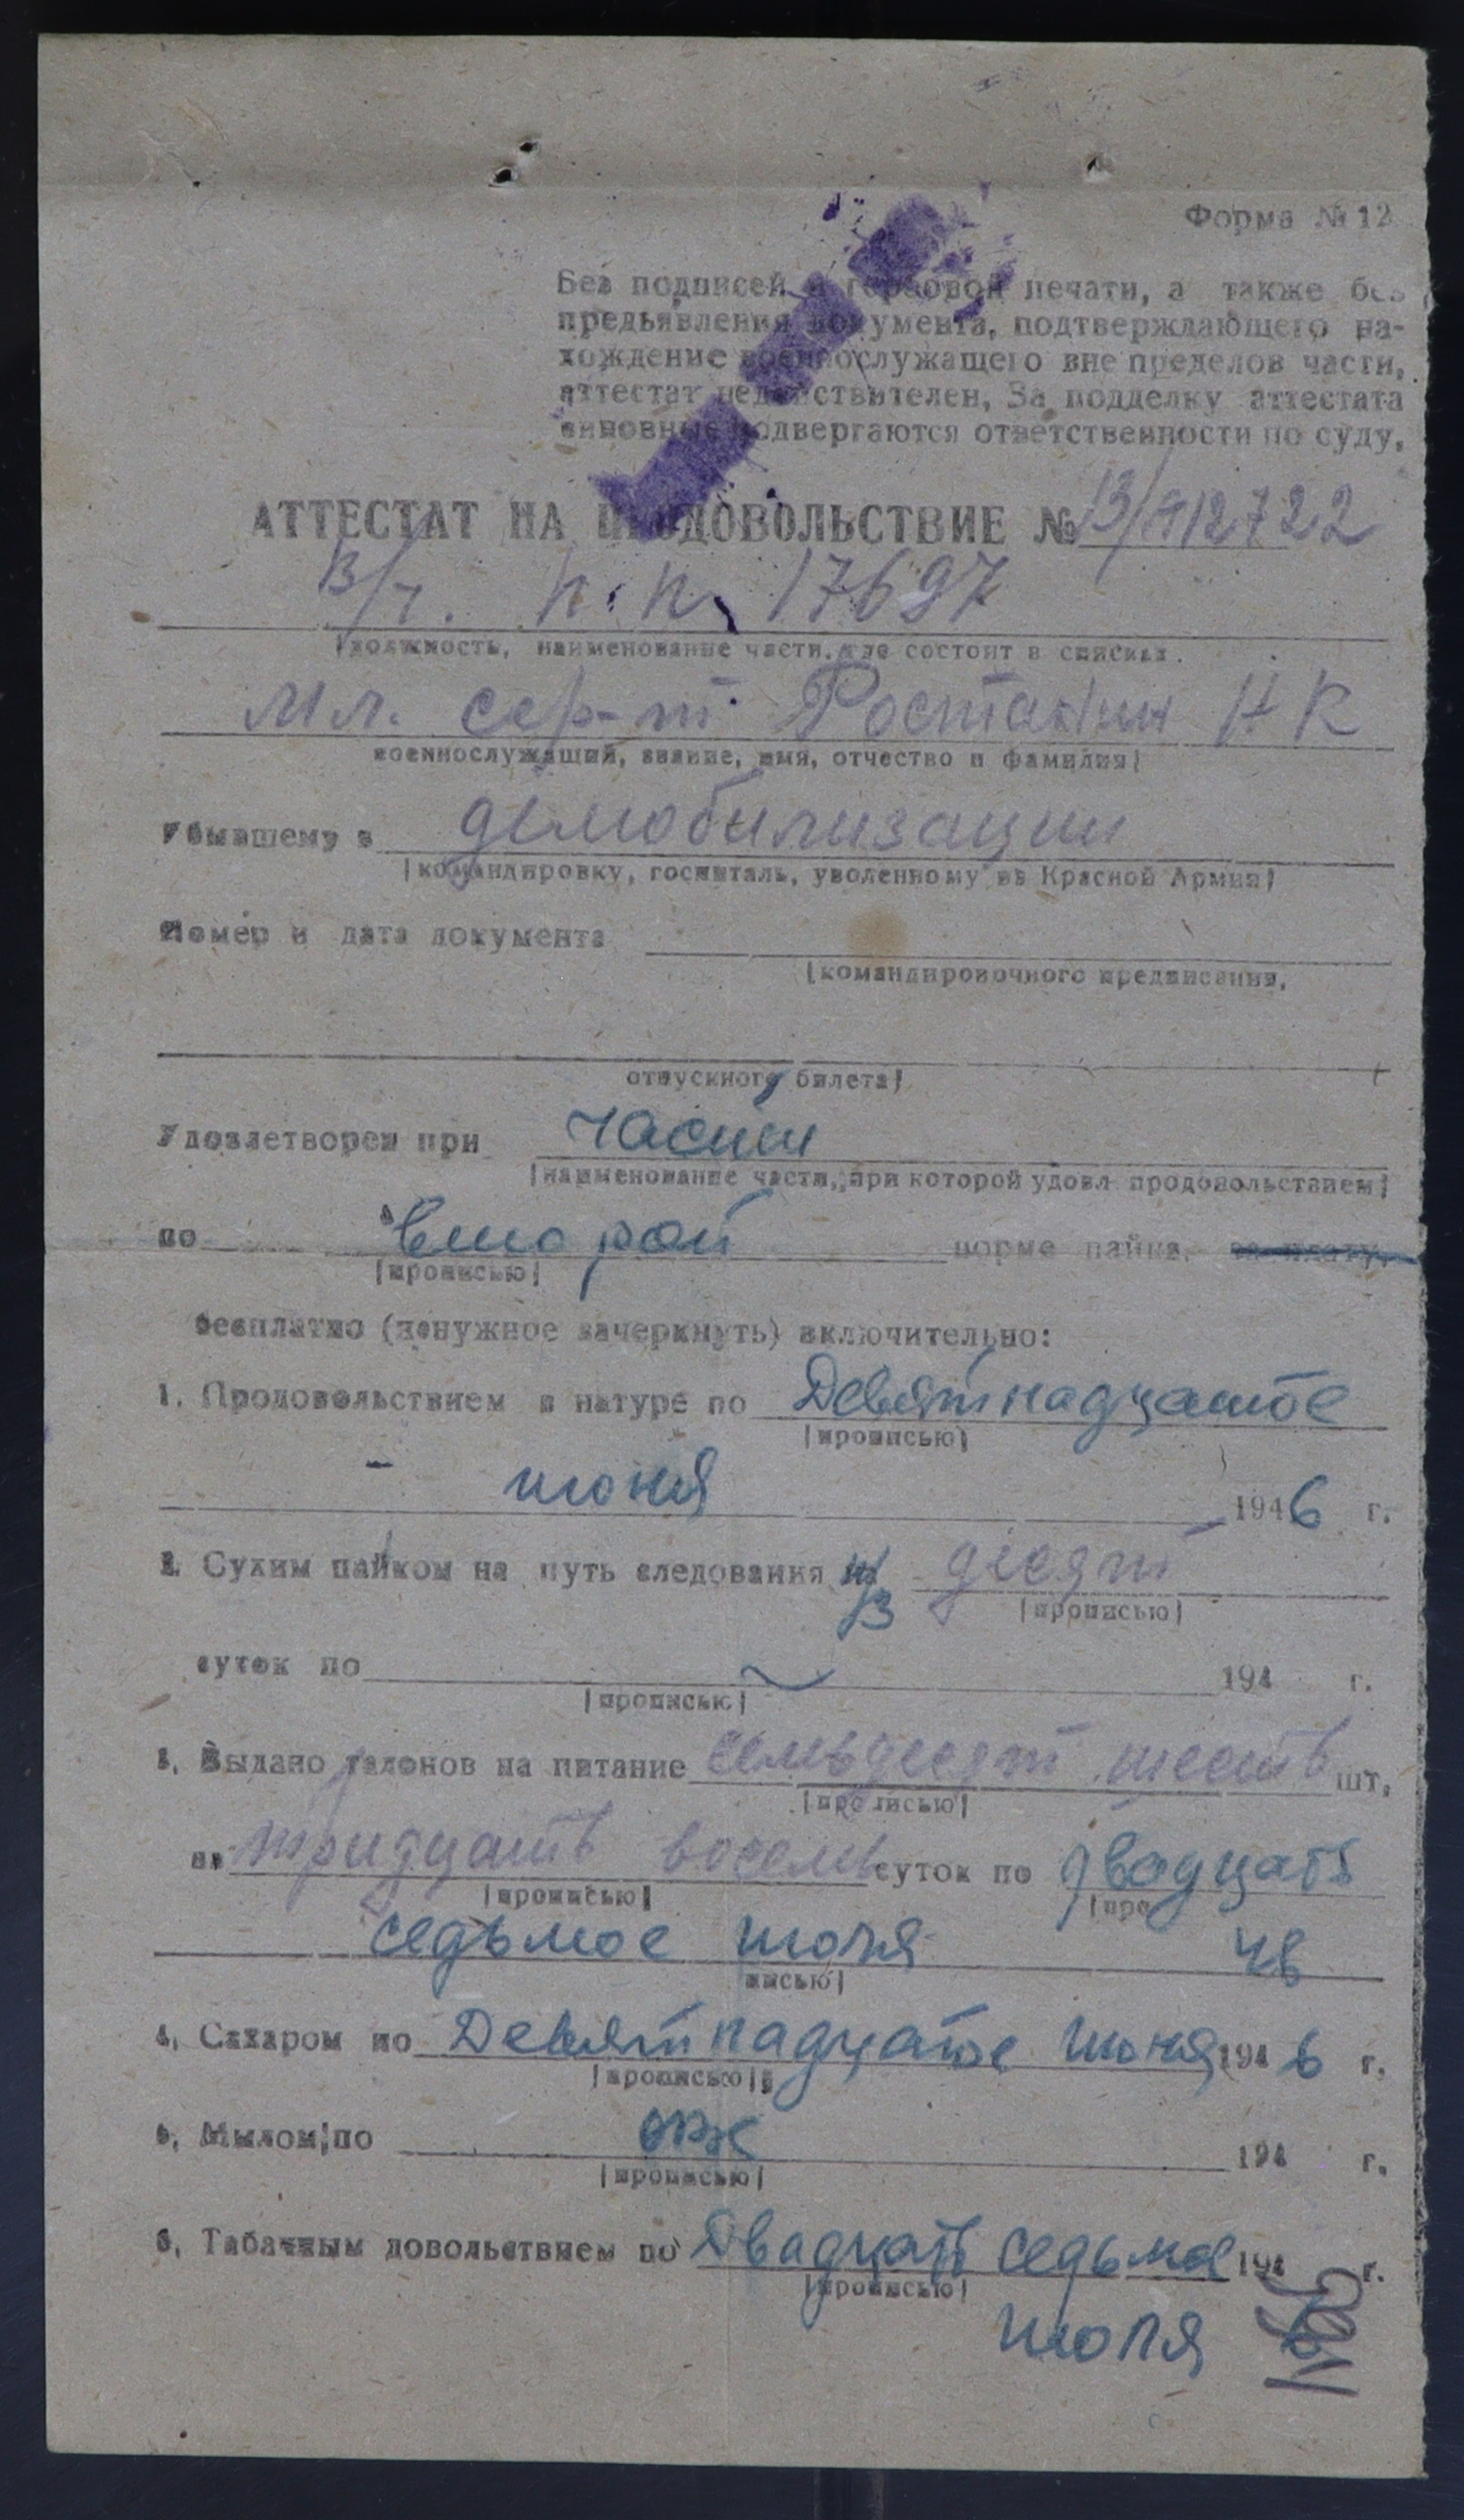 Форма № 12
Без подписей и гербовой печати, а также без
предьявления документа, подтверждающего на-
хождение военнослужащего вне пределов части,
аттестат недействителен, За подделку аттестата
виновные подвергаются ответственности по суду,
АТТЕСТАТ НА ПРОДОВОЛЬСТВИЕ № 13/
в/ч. п. п. 17697
должность, наименование части, где состоит в списках.
Мл. сер-т Ростанин Н К
военнослужащий, звание, имя, отчество и фамилия)
Убывшему в демобилизации
(командировку, госпиталь, уволенному из Красной Армии)
Номер и дата документа
(командировочного предписания,
отпускного билета)
Удовлетворен при части
(наименование части, при которой удовл продовольствием)
по второй норме пайка, за плату,
(прописью)
бесплатно (ненужное зачеркнуть) включительно:
1. Продовольствием в натуре по Девятнадцатое
(прописью)
июня 1946 г.
2. Сухим пайком на путь следования десят
(прописью)
суток по 194 г.
(прописью)
3. Выдано талонов на питание семьдесят шесть шт,
(прописью)
на тридцать восемь суток по двадцать
(прописью) (про
седьмое июля 46
писью)
4, Сахаром по Девятнадцатое июня 1946 г.
(прописью)
5, Мылом по 194 г.
(прописью)
6, Табачным довольствием по Двадцать седьмое 194 г.
(прописью)
июля 6